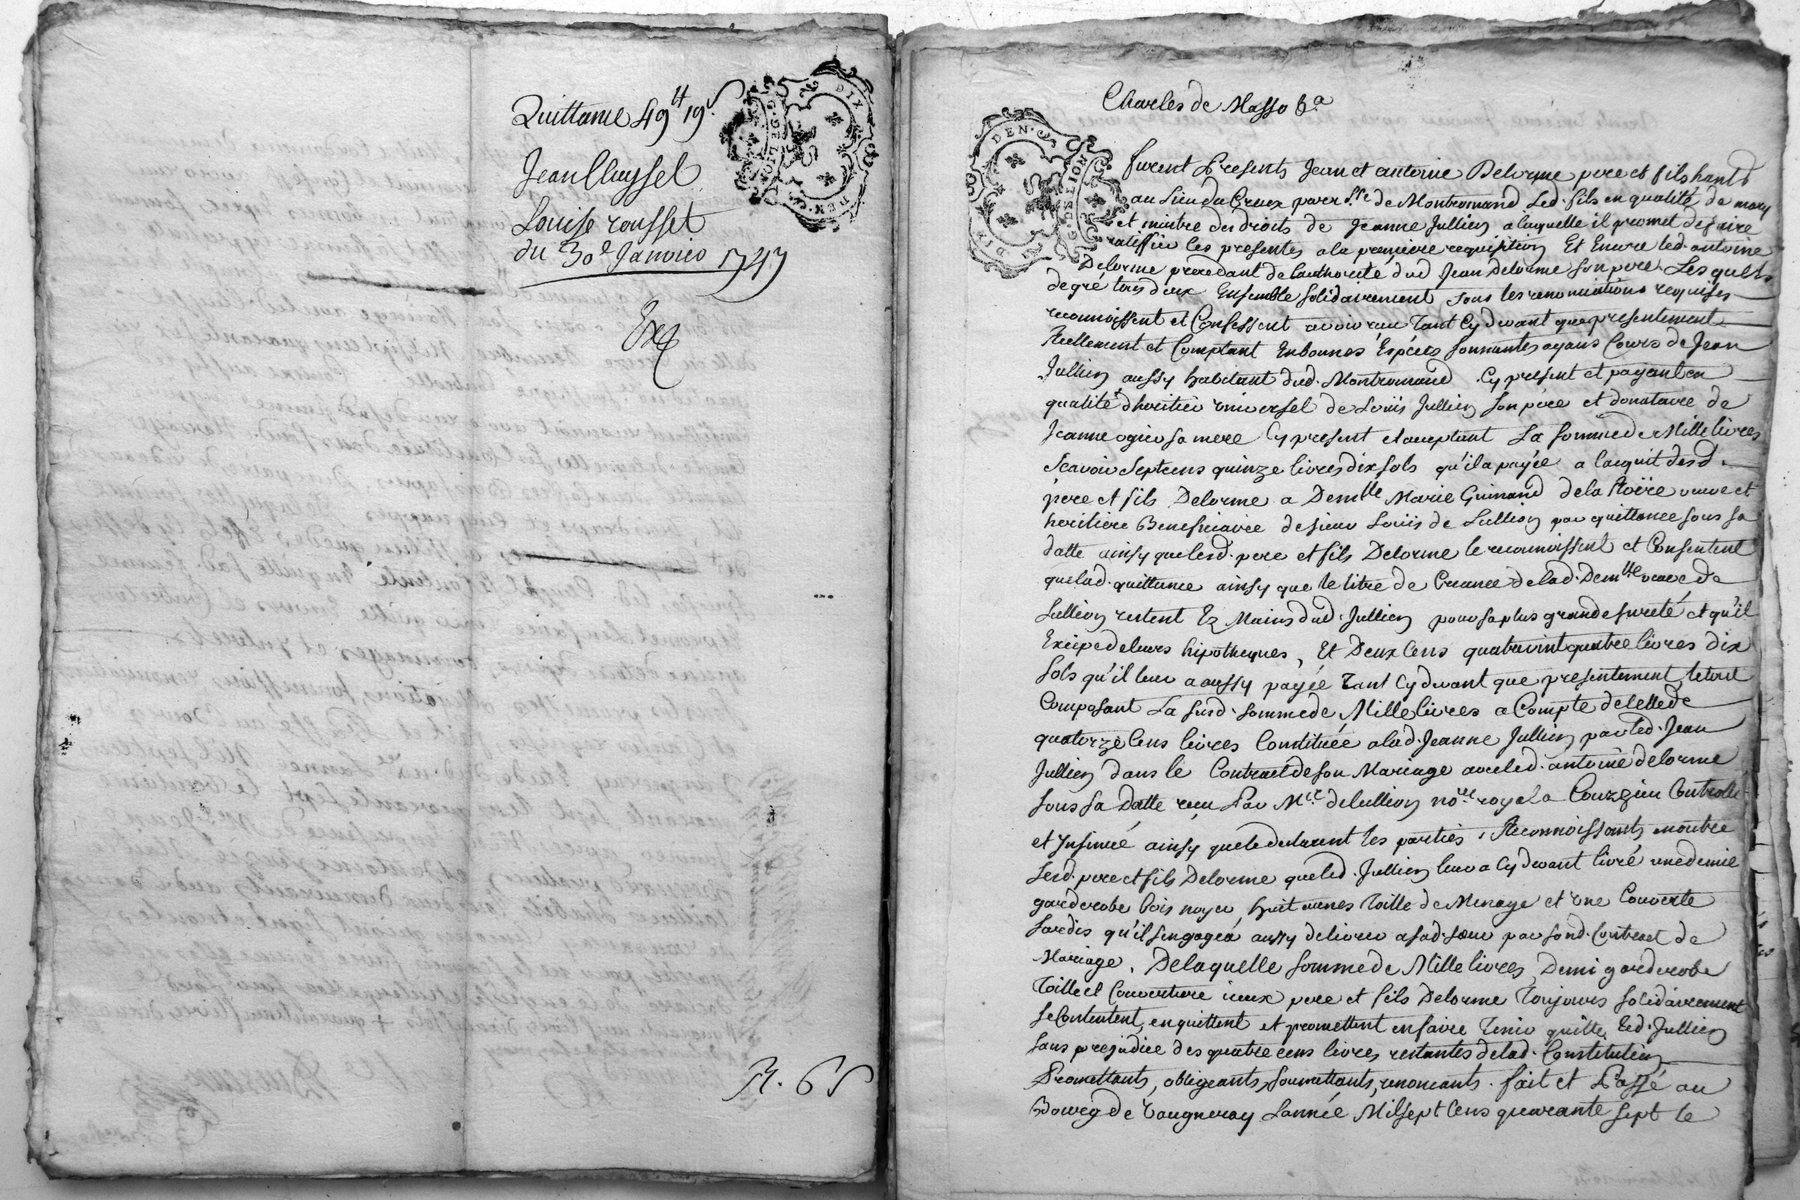 Quittance 49lt 19s
Jean Cluyssel
Louise rousset
du 30e Janvier 1747
Exp
R. 6 s
DIX DEN. G. DE LION
Charles de Masso &a
DIX DEN. G. DE LION
furent Presents Jean et antoine Delorme pere et fils hants
au Lieu du Creux parsse de Montromand Led. fils en qualité de mary
et maitre des droits de Jeanne Jullien a laquelle il promet de faire
ratiffier les presentes a la premiere requisition Et Encore led. antoine
Delorme procedant de lauthorité dud Jean Delorme son pere Lesquels
de gré tous deux Ensemble solidairement sous les renonciations requises
reconnoissent et Confessent avoir reçu Tant Cy devant que presentement
Reellement et Comptant En bonnes Espéces sonnantes ayans Cours de Jean
Jullien aussy habitant dud. Montromand Cy present et payant en
qualité d'heritier universel de Loüis Jullien son pere et donataire de
Jeanne ogier sa mere Cy present et acceptant La somme de Mille livres
Scavoir Septcens quinze livres dix sols qu'il a payée a lacquit desd.
pere et fils Delorme a Demlle Marie Guinand de la Roëre veuve et
heritiere Beneficiaree de sieur Loüis de Lullion par quittance sous sa
datte ainsy que lesd. pere et fils Delorme le reconnoissent et Consentent
que lad. quittance ainsy que le titre de Creance de lad. Demlle veuve de
Lullion restent Ez Mains dud. Jullien pour sa plus grande sureté et qu'il
Excipe de leurs hipotheques, Et Deux Cens quatrevint quatre livres dix
Sols qu'il leur a aussy payée Tant Cy devant que presentement, le tout
Composant La susd. somme de Mille livres a Compte de Celle de
quatorze Cens livres Constituée a lad. Jeanne Jullien par led. Jean
Jullien dans le Contract de son Mariage avec led. antoine delorme
sous sa Datte reçu Par Mre delullion nore royal a Courzieu Controllé
et Insinué ainsy que le declarent les parties, Reconnoissants en outre
Lesd. pere et fils Delorme que led. Jullien leur a Cy devant livré une demie
garderobe bois noyer, huit aunes Toille de Menage et une Couverte
sardis qu'il s'engagea aussy de livrer a sad. sœur par sond. Contract de
Mariage. De laquelle somme de Mille livres Demi garderobe
Toille et Couverture iceux pere et fils Delorme Toujours solidairement
se Contentent, en quittent et promettent en faire Tenir quitte Led. Jullien
sans prejudice des quatre cens livres restantes de lad. Constitution
Promettants, obligeants, soumettants, renoncants. fait et Passé au
Bourg de Vaugneray L'année Mil sept Cens quarante sept le